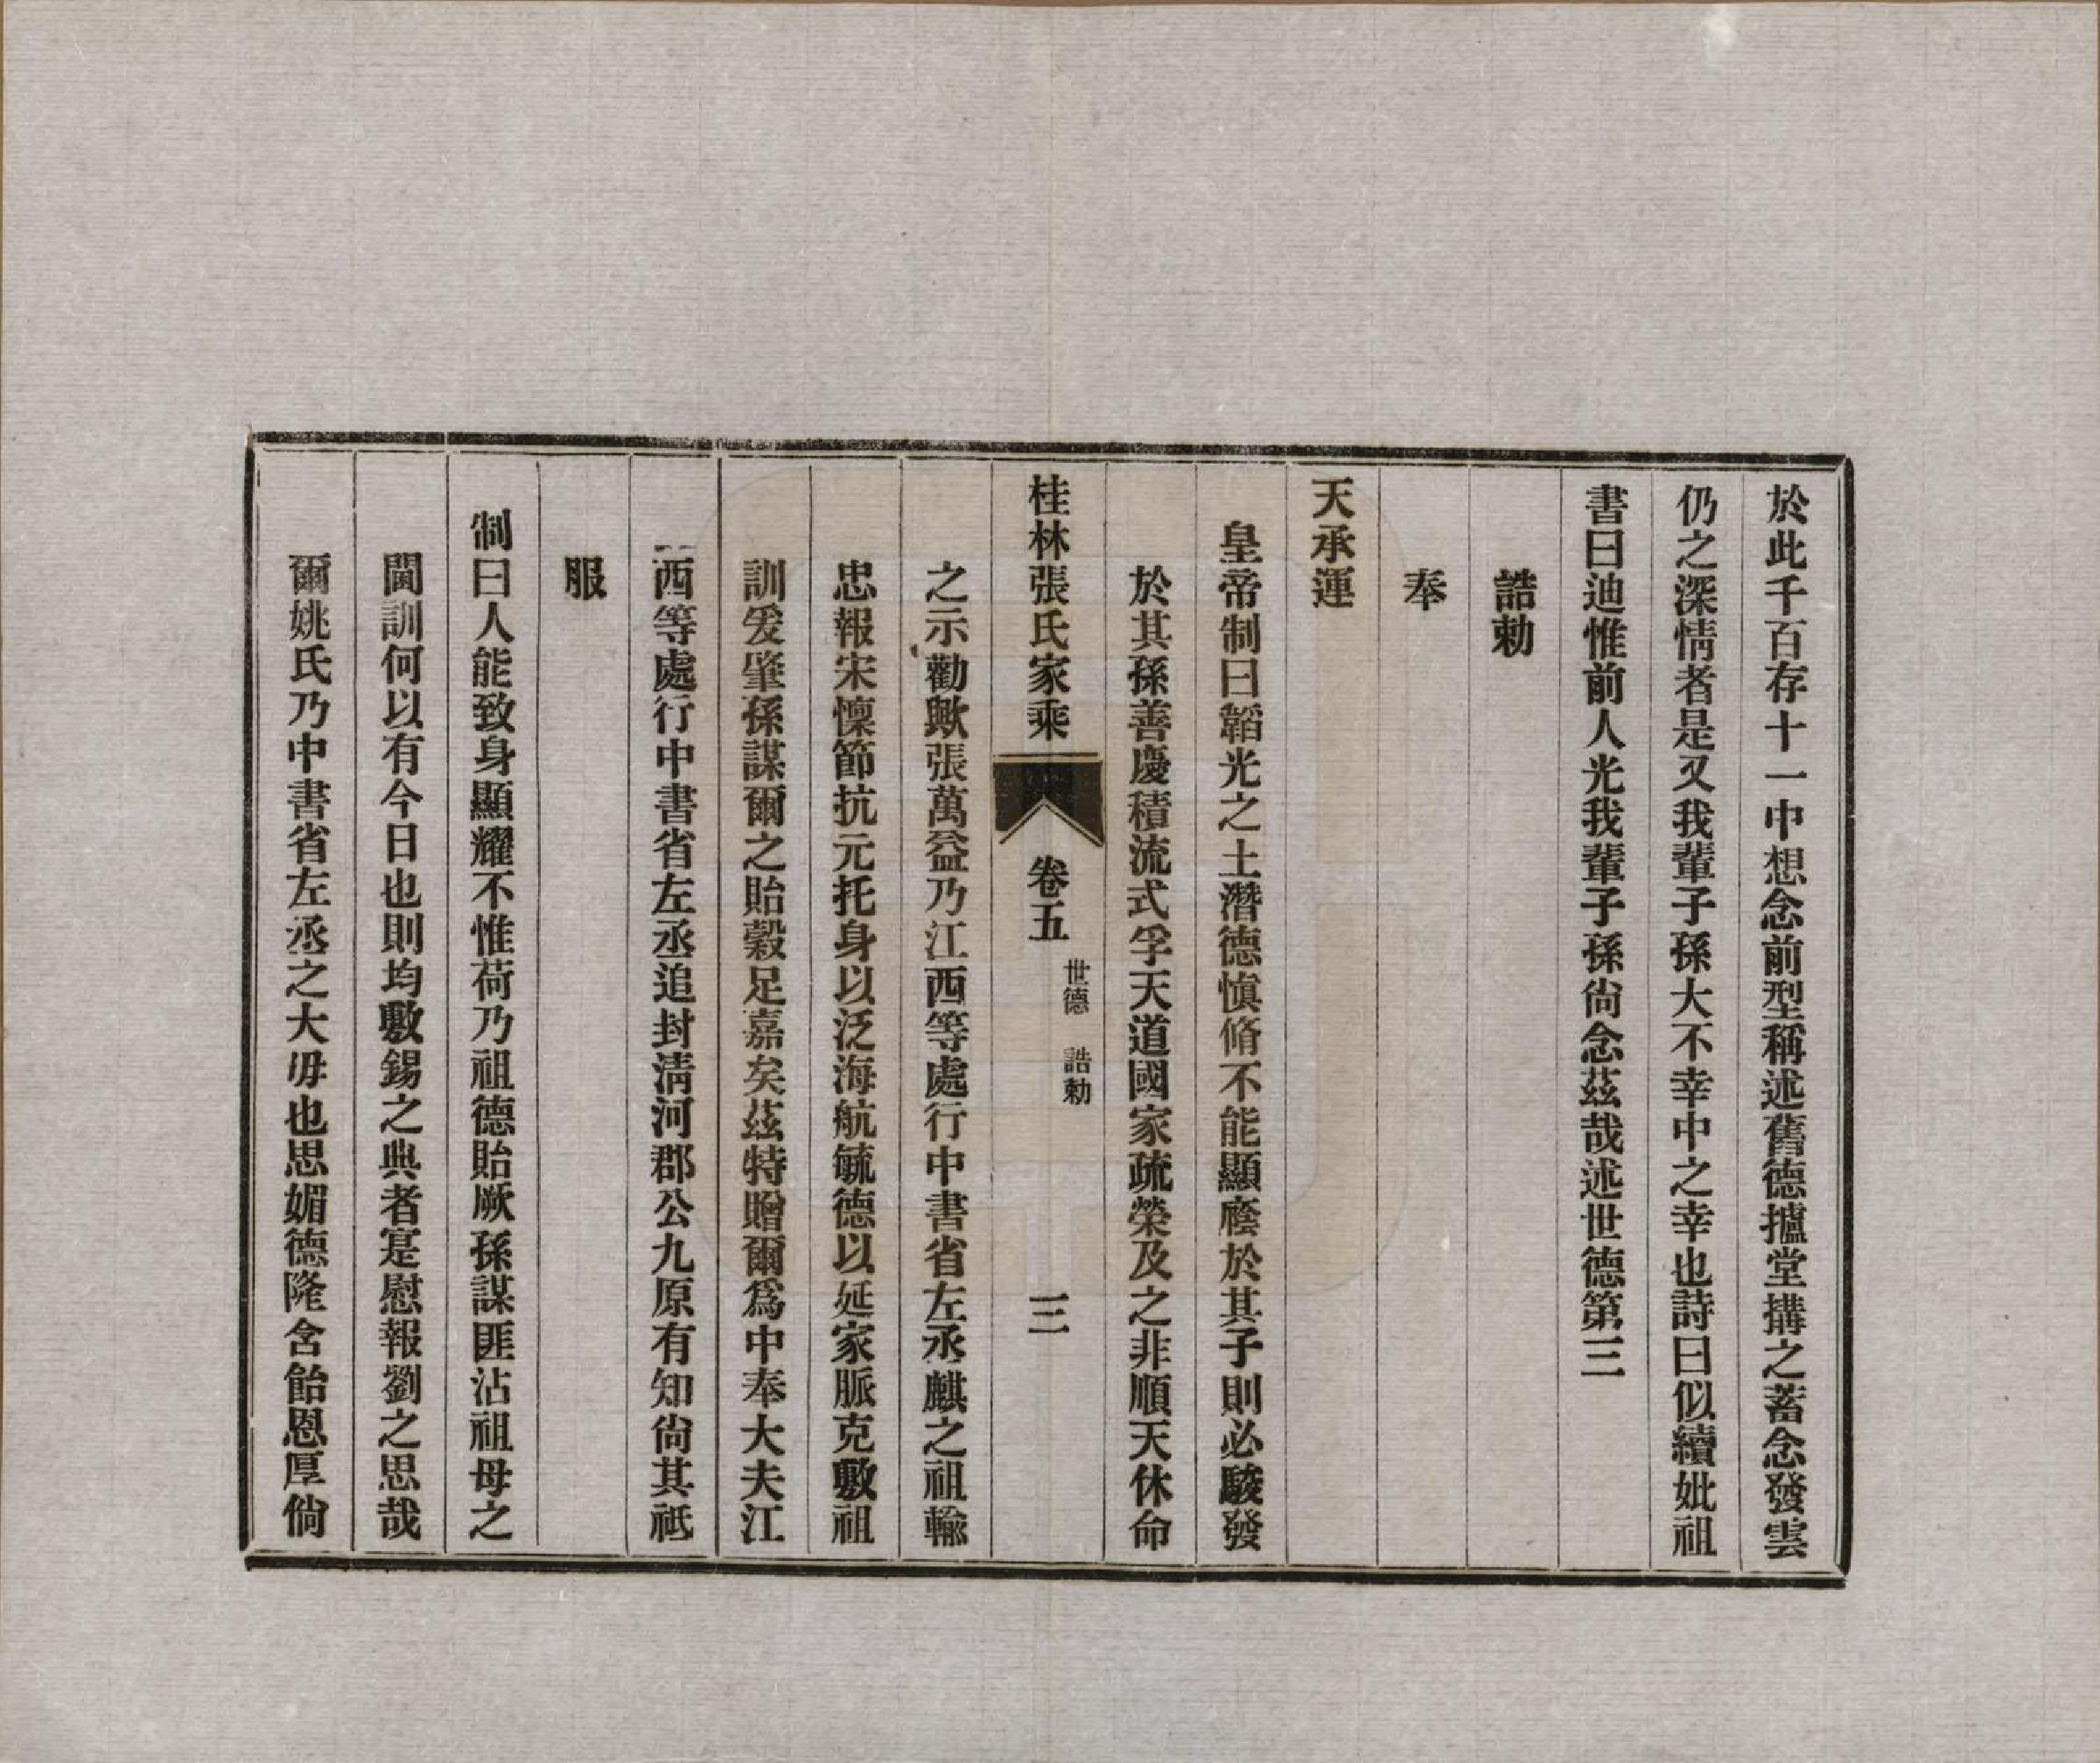 於此千百存十一中想念前型稱述舊德攄堂搆之蓄念發雲
仍之深情者是又我輩子孫大不幸中之幸也詩曰似續妣祖
書曰迪惟前人光我輩子孫尙念茲哉述世德第三
誥勅
奉
天承運
皇帝制曰韜光之士潛德愼脩不能顯廕於其子則必駿發
於其孫善慶積流式孚天道國家疏榮及之非順天休命
桂林張氏家乘 卷五 世德 誥勅 三
之示勸歟張萬益乃江西等處行中書省左丞麒之祖輸
忠報宋懍節抗元托身以泛海航毓德以延家脈克敷祖
訓爰肇孫謀爾之貽穀足嘉矣茲特贈爾爲中奉大夫江
西等處行中書省左丞追封淸河郡公九原有知尙其祗
服
制曰人能致身顯耀不惟荷乃祖德貽厥孫謀匪沾祖母之
閫訓何以有今日也則均敷錫之典者寔慰報劉之思哉
爾姚氏乃中書省左丞之大毋也思媚德隆含飴恩厚倘